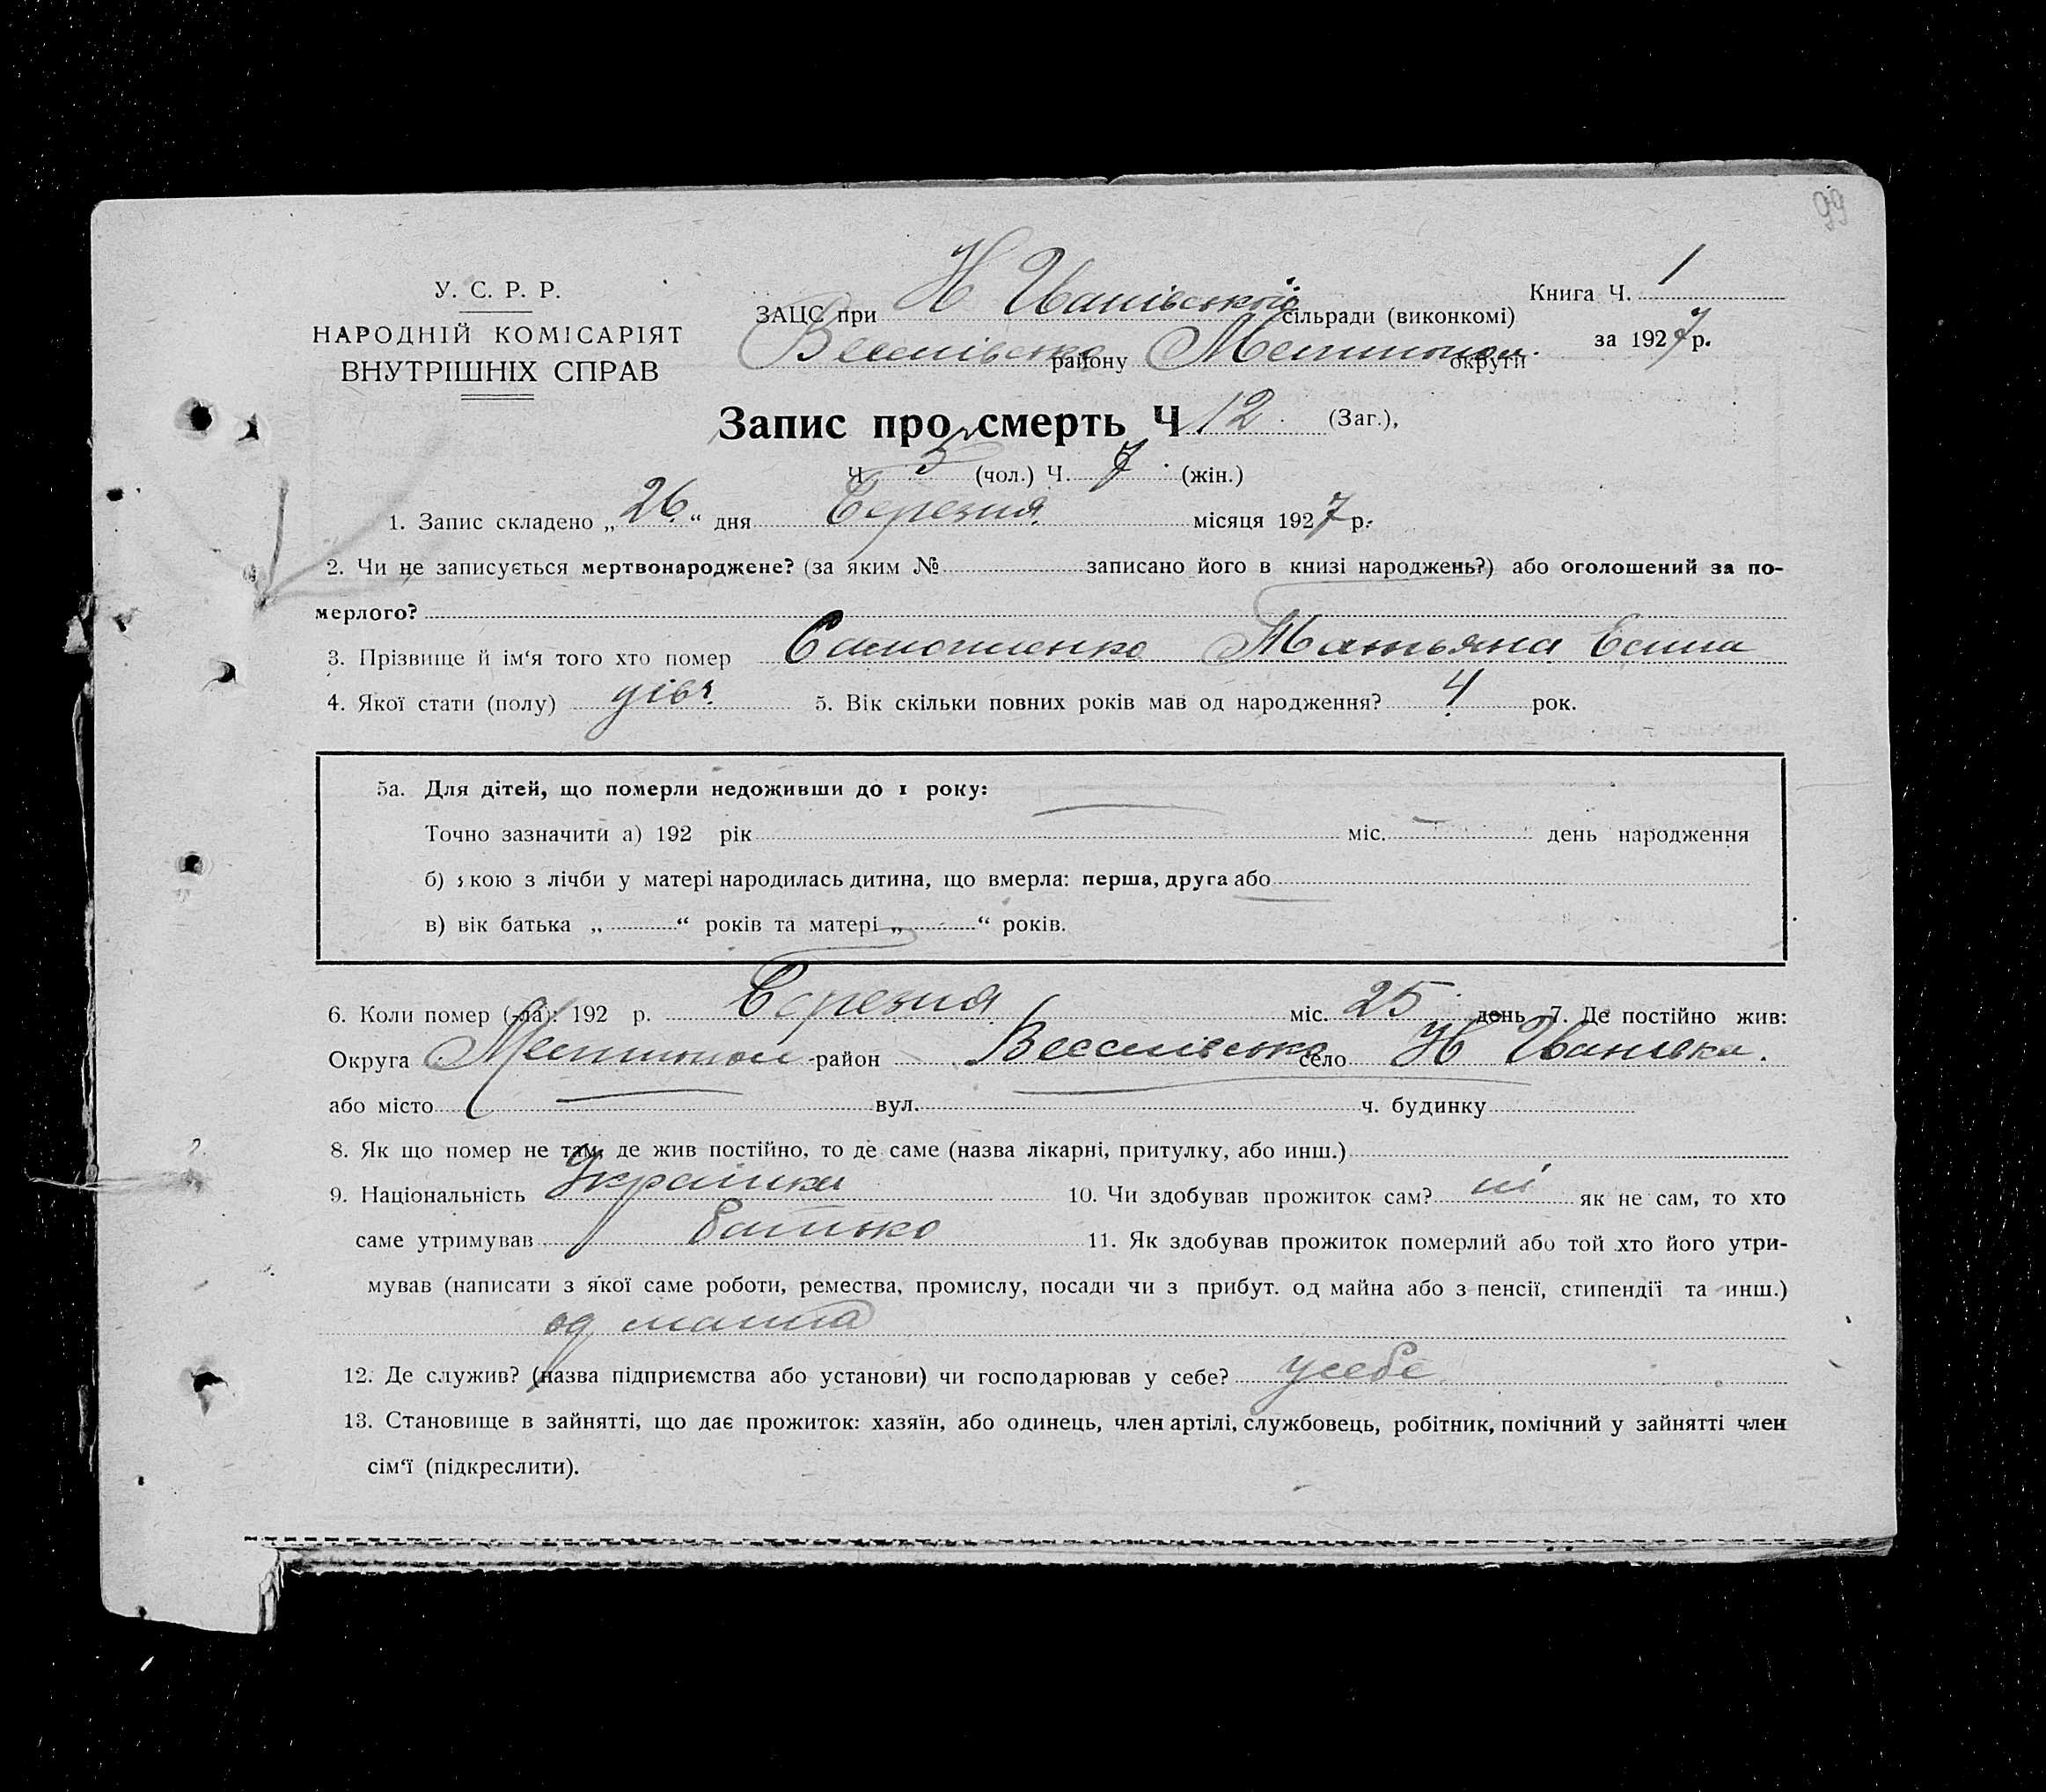 99
У. С. Р. Р.
НАРОДНІЙ КОМІСАРІЯТ
ВНУТРІШНІХ СПРАВ
ЗАЦС при Н Іванівській сільради (виконкомі)
Веселівсько району Мелитопол. округи
Книга Ч. 1
за 1927 р.
Запис про смерть Ч 12 (Заг.),
Ч 5 (чол.) Ч. 7 (жін.)
1. Запис складено „26“ дня Березня місяця 1927 р.
2. Чи не записується мертвонароджене? (за яким № записано його в книзі народжень?) або оголошений за по-
мерлого?
3. Прізвище й ім‘я того хто помер Татьяна
4. Якої стати (полу) дівч. 5. Вік скільки повних років мав од народження? 4 рок.
5а. Для дітей, що померли недоживши до 1 року:
Точно зазначити а) 192 рік міс. день народження
б) якою з лічби у матері народилась дитина, що вмерла: перша, друга або
в) вік батька „ “ років та матері „ “ років.
6. Коли помер (-ла): 192 р. Березня міс. 25 день 7. Де постійно жив:
Округа Мелитопол район Веселівсько село Н Іванівка.
або місто вул. ч. будинку
8. Як що помер не там, де жив постійно, то де саме (назва лікарні, притулку, або инш.)
9. Національність Українка 10. Чи здобував прожиток сам? ні як не сам, то хто
саме утримував батько 11. Як здобував прожиток померлий або той хто його утри-
мував (написати з якої саме роботи, ремества, промислу, посади чи з прибут. од майна або з пенсії, стипендії та инш.)
од майна
12. Де служив? (назва підприємства або установи) чи господарював у себе? усебе
13. Становище в зайнятті, що дає прожиток: хазяїн, або одинець, член артілі, службовець, робітник, помічний у зайнятті член
сім‘ї (підкреслити).